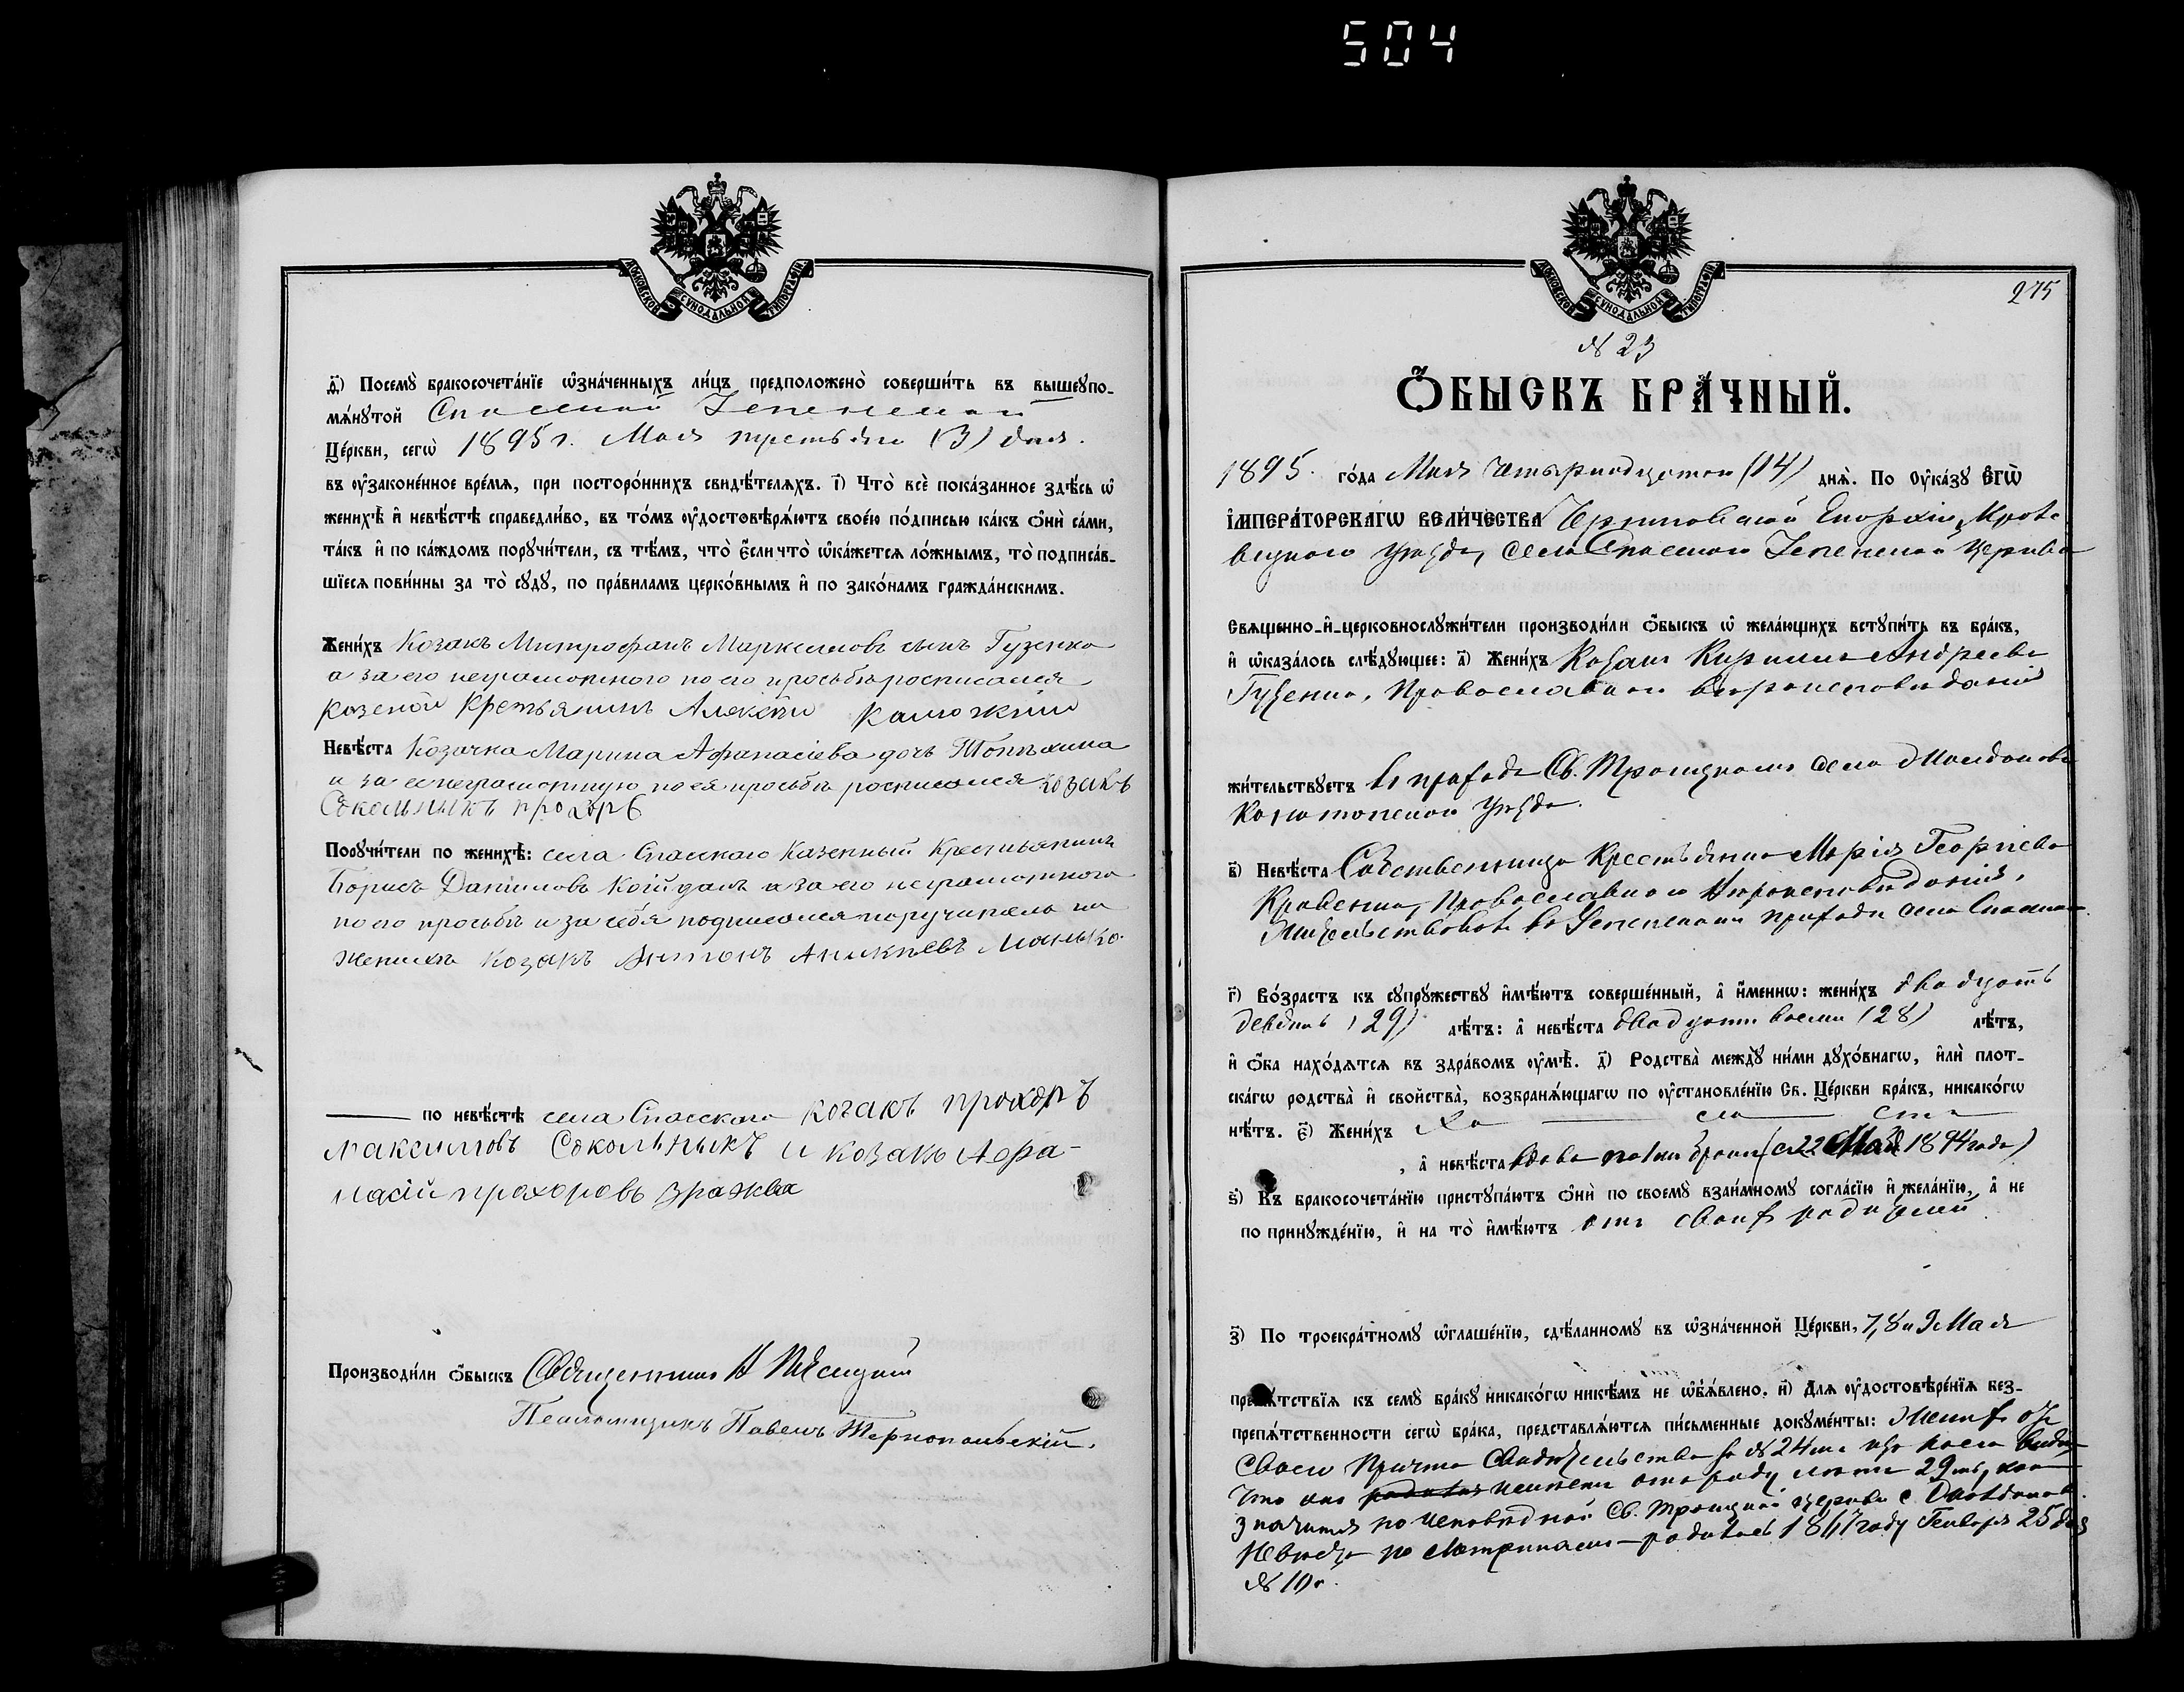 504
МОСКОВСКОЙ СѴНОДАЛЬНОЙ ТИПОГРАФІИ
д҃) Посемꙋ̀ бракосочета́нїе ѡ҆зна́ченныхъ ли́цъ предположено̀ соверши́ть въ вышеꙋпо-
мѧ́нꙋтой Спасской
Це́ркви, сегѡ̀ 1895 г. Мая третьяго (3) дня.
въ ᲂу҆законе́нное вре́мѧ, при посторо́ннихъ свидѣ́телѧхъ. і҃) Что̀ всѐ пока́занное здѣ́сь ѡ҆
женихѣ̀ и҆ невѣ́стѣ справедли́во, въ то́мъ ᲂу҆достовѣрѧ́ютъ свое́ю по́дписью ка́къ ѻ҆нѝ са́ми,
та́къ и҆ по ка́ждомъ порꙋчи́тели, съ тѣ́мъ, что̀ є҆́сли что̀ ѡ҆ка́жется ло́жнымъ, то̀ подписа́в-
шїеся пови́нны за то̀ сꙋдꙋ̀, по пра́виламъ церко́внымъ и҆ по зако́намъ гражда́нскимъ.
Жени́хъ Козакъ Митрофанъ Марксимовъ сынъ Гузенко
а за его неграмотного по его просьбѣ росписался
козеной Крѣтьянинъ Алексѣи
Невѣ́ста Козачка Марина Афанасіева дочь
а за ее неграмотную по ея просьбѣ росписался козакъ
Сокольныкъ прохоръ
Порꙋчи́тели по женихѣ̀: села Спаскаго Казенный Крестьянинъ
Борисъ Даниловъ Койданъ а за его неграмотного
по его просьбѣ и за себя подписался поручитель по
женихѣ козакъ Антонъ Аникѣевъ
по невѣ́стѣ села Спасского козакъ прохоръ
максимовъ Сокольныкъ и козакъ Афа-
насій прохоровъ
Производи́ли ѻ҆́быскъ Священникъ
Псаломщикъ Павелъ Тернопольскій.
МОСКОВСКОЙ СѴНОДАЛЬНОЙ ТИПОГРАФІИ
275
№ 23
Ѻ҆́БЫСКЪ БРА́ЧНЫЙ.
1895. го́да Мая четырнадцатого (14) днѧ̀. По ᲂу҆ка́зꙋ Є҆ГѠ̀
І҆МПЕРА́ТОРСКАГѠ ВЕЛИ́ЧЕСТВА Черниговской Епархіи, Кроле-
вецкого уѣзда, села Спасского церкви
Свѧщенно-и҆-церковнослꙋжи́тели производи́ли ѻ҆́быскъ ѡ҆ жела́ющихъ встꙋпи́ть въ бра́къ,
и҆ ѡ҆каза́лось слѣ́дꙋющее: а҃) Жени́хъ Козакъ Кирилъ Андреевъ
Гузенко, Православного вѣроисповѣданія
жи́тельствꙋетъ въ приходѣ Св. Троицкомъ села
Конотопского Уѣзда.
в҃) Невѣ́ста Собственница Крестьянка Марія Георгіева
Кравченко, Православного Вѣроисповѣданія,
приходѣ села Спасского
г҃) Во́зрастъ къ сꙋпрꙋ́жествꙋ и҆мѣ́ютъ соверше́нный, а҆ и҆́меннѡ: жени́хъ двадцать
девять (29) лѣ́тъ: а҆ невѣ́ста двадцати восми (28) лѣ́тъ,
и҆ ѻ҆́ба нахо́дѧтсѧ въ здра́вомъ ᲂу҆мѣ̀. д҃) Родства̀ междꙋ̀ ни́ми дꙋхо́внагѡ, и҆лѝ плот-
ска́гѡ родства̀ и҆ свойства̀, возбранѧ́ющагѡ по ᲂу҆становле́нїю Св. Це́ркви бра́къ, никако́гѡ
нѣ́тъ. є҃) Жени́хъ Хо — ло — стъ
, а҆ невѣ́ста вдова по 1мъ бракѣ (съ 22 Мая 1894 года)
ѕ҃) Къ бракосочета́нїю пристꙋпа́ютъ ѻ҆нѝ по своемꙋ̀ взаи́мномꙋ согла́сїю и҆ жела́нїю, а҆ не
по принꙋжде́нїю, и҆ на то̀ и҆мѣ́ютъ отъ своихъ родителей
з҃) По троекра́тномꙋ ѡ҆глаше́нїю, сдѣ́ланномꙋ въ ѡ҆зна́ченной Це́ркви, 7, 8 и 9 Мая
препѧ́тствїѧ къ семꙋ̀ бра́кꙋ никако́гѡ никѣ́мъ не ѡ҆б̾ѧ́влено. и҃) Длѧ ᲂу҆достовѣре́нїѧ без-
препѧ́тственности сегѡ̀ бра́ка, представлѧ́ютсѧ пи́сьменные докꙋме́нты: Женихъ отъ
своего Причта Свидѣтельство за № 24мъ изъ коего видно
что онъ родился отъ роду 29
значится по исповѣдной Св. Троицкой церкви с.
Невѣста по Метрикамъ – родилась 1867 году Генваря 25 дня
№ 10